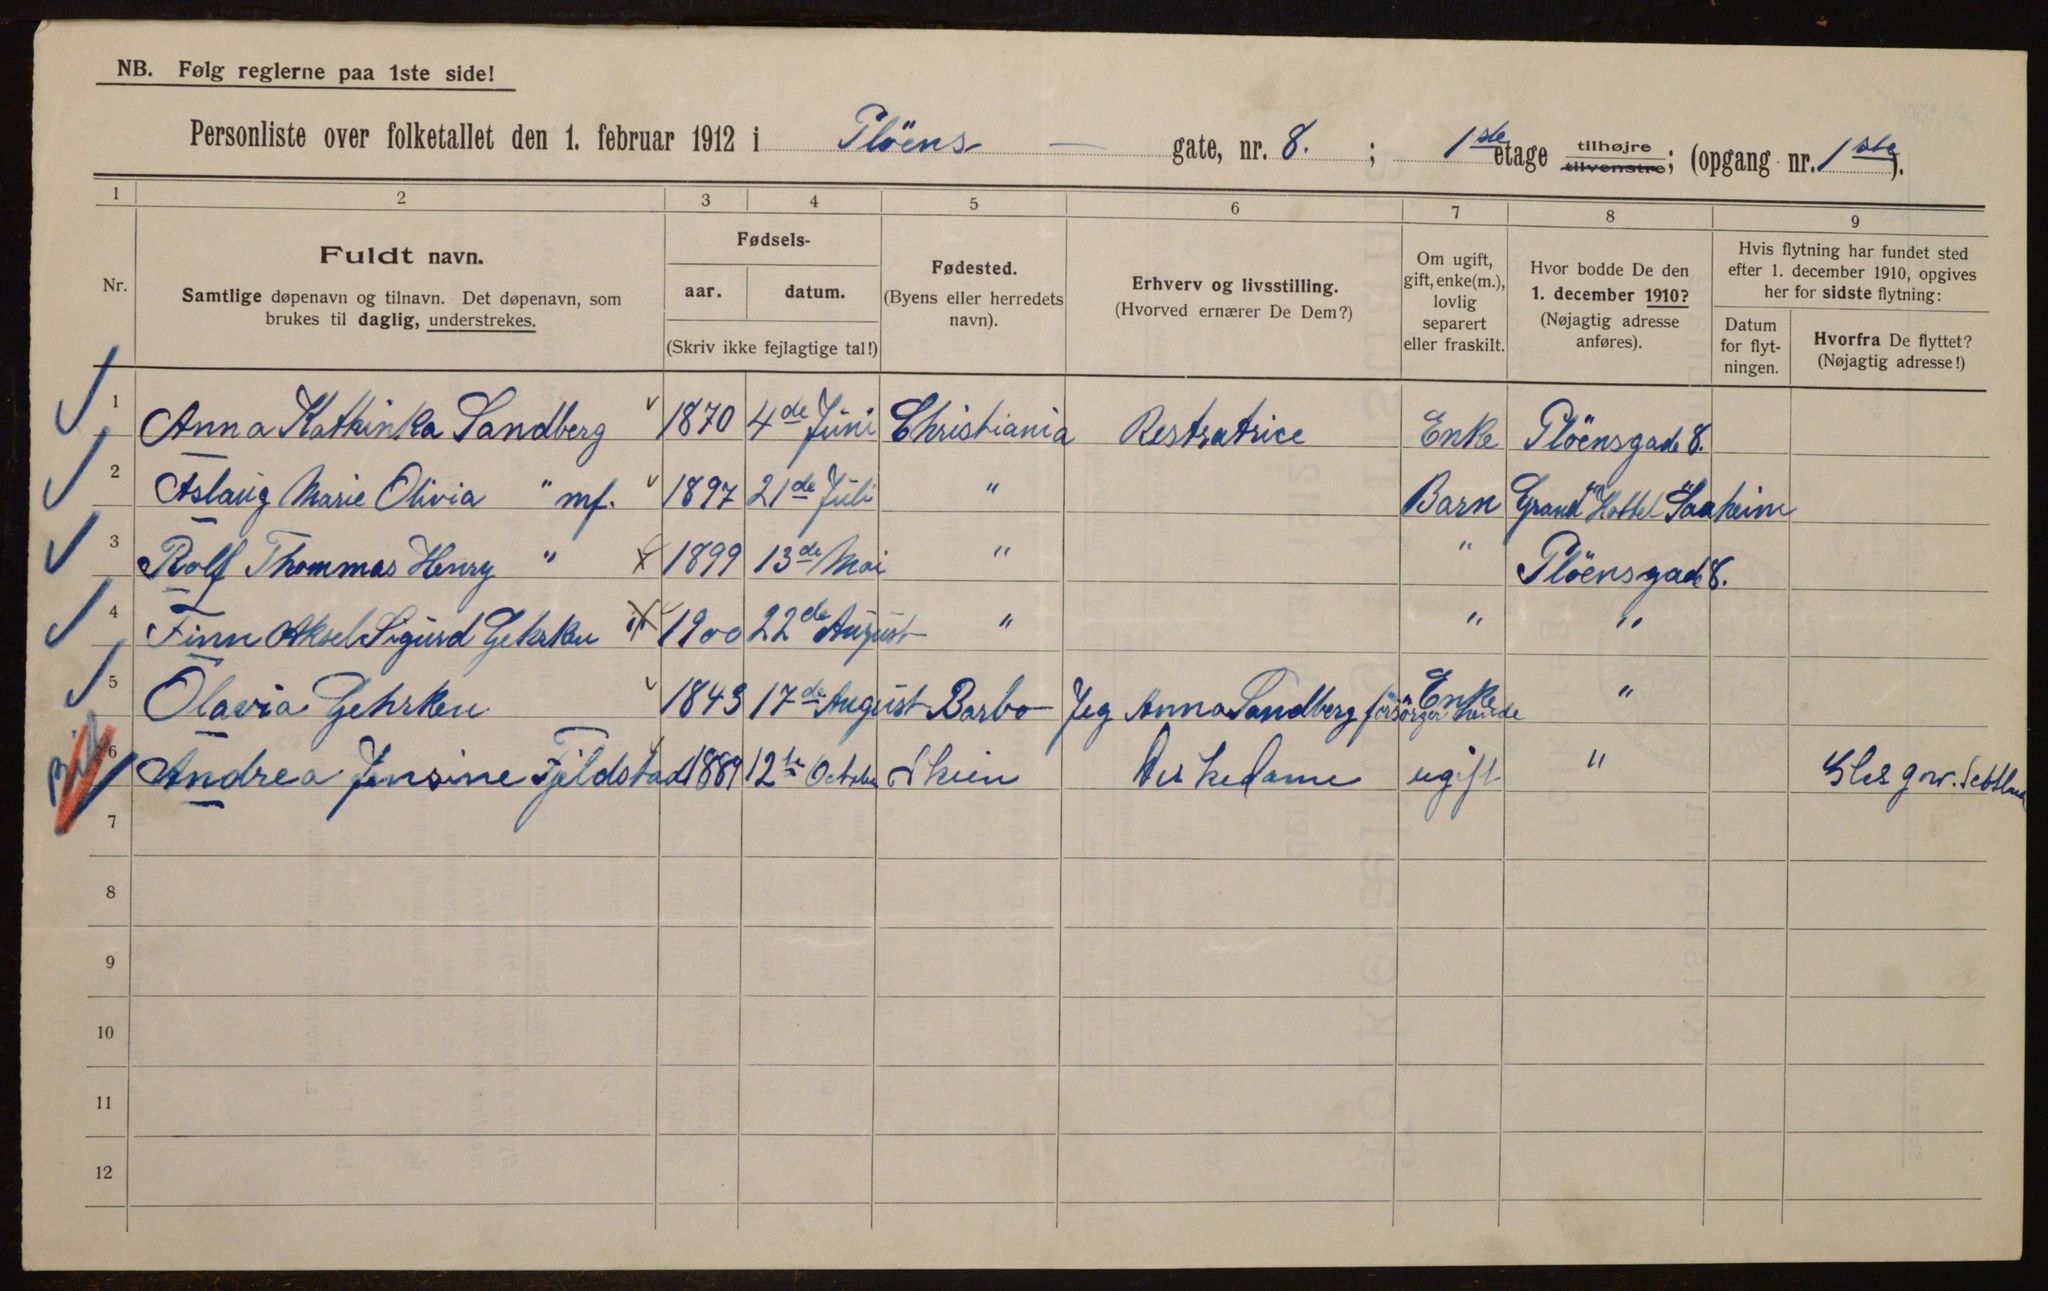 NB. Følg reglerne paa 1ste side!
Personliste over folketallet den 1. februar 1912 i Plöens gate, nr. 8. ; 1ste etage tilhøjre tilvenstre; (opgang nr. 1ste).
1 2 3 4 5 6 7 8 9
Nr.
Fuldt navn.
Samtlige døpenavn og tilnavn. Det døpenavn, som
brukes til daglig, understrekes.
Fødsels-
aar. datum.
(Skriv ikke fejlagtige tal!)
Fødested.
(Byens eller herredets
navn).
Erhverv og livsstilling.
(Hvorved ernærer De Dem?)
Om ugift,
gift, enke(m.),
lovlig
separert
eller fraskilt.
Hvor bodde De den
1. december 1910?
(Nøjagtig adresse
anføres).
Hvis flytning har fundet sted
efter 1. december 1910, opgives
her for sidste flytning:
Datum
for flyt-
ningen.
Hvorfra De flyttet?
(Nøjagtig adresse!)
1 Anna Kathinka Sandberg 1870 4de Juni Christiania Restratrice Enke Plöensgade 8.
2 Aslaug Marie Olivia " mf. 1897 21de Juli " Barn Grand Hottel Saaheim
3 Rolf Thommas Henry " 1899 13de Mai " " Plöensgade 8.
4 Finn Aksel Sigurd Gehrken 1900 22de August " " "
5 Olavia Gehrken 1843 17de August Barbo Jeg Anna Sandberg forsörger hende Enke "
6 Andrea Jensine Fjeldstad 1889 12te October Skien Diskedame ugift " Glesgow. Scotland
7
8
9
10
11
12